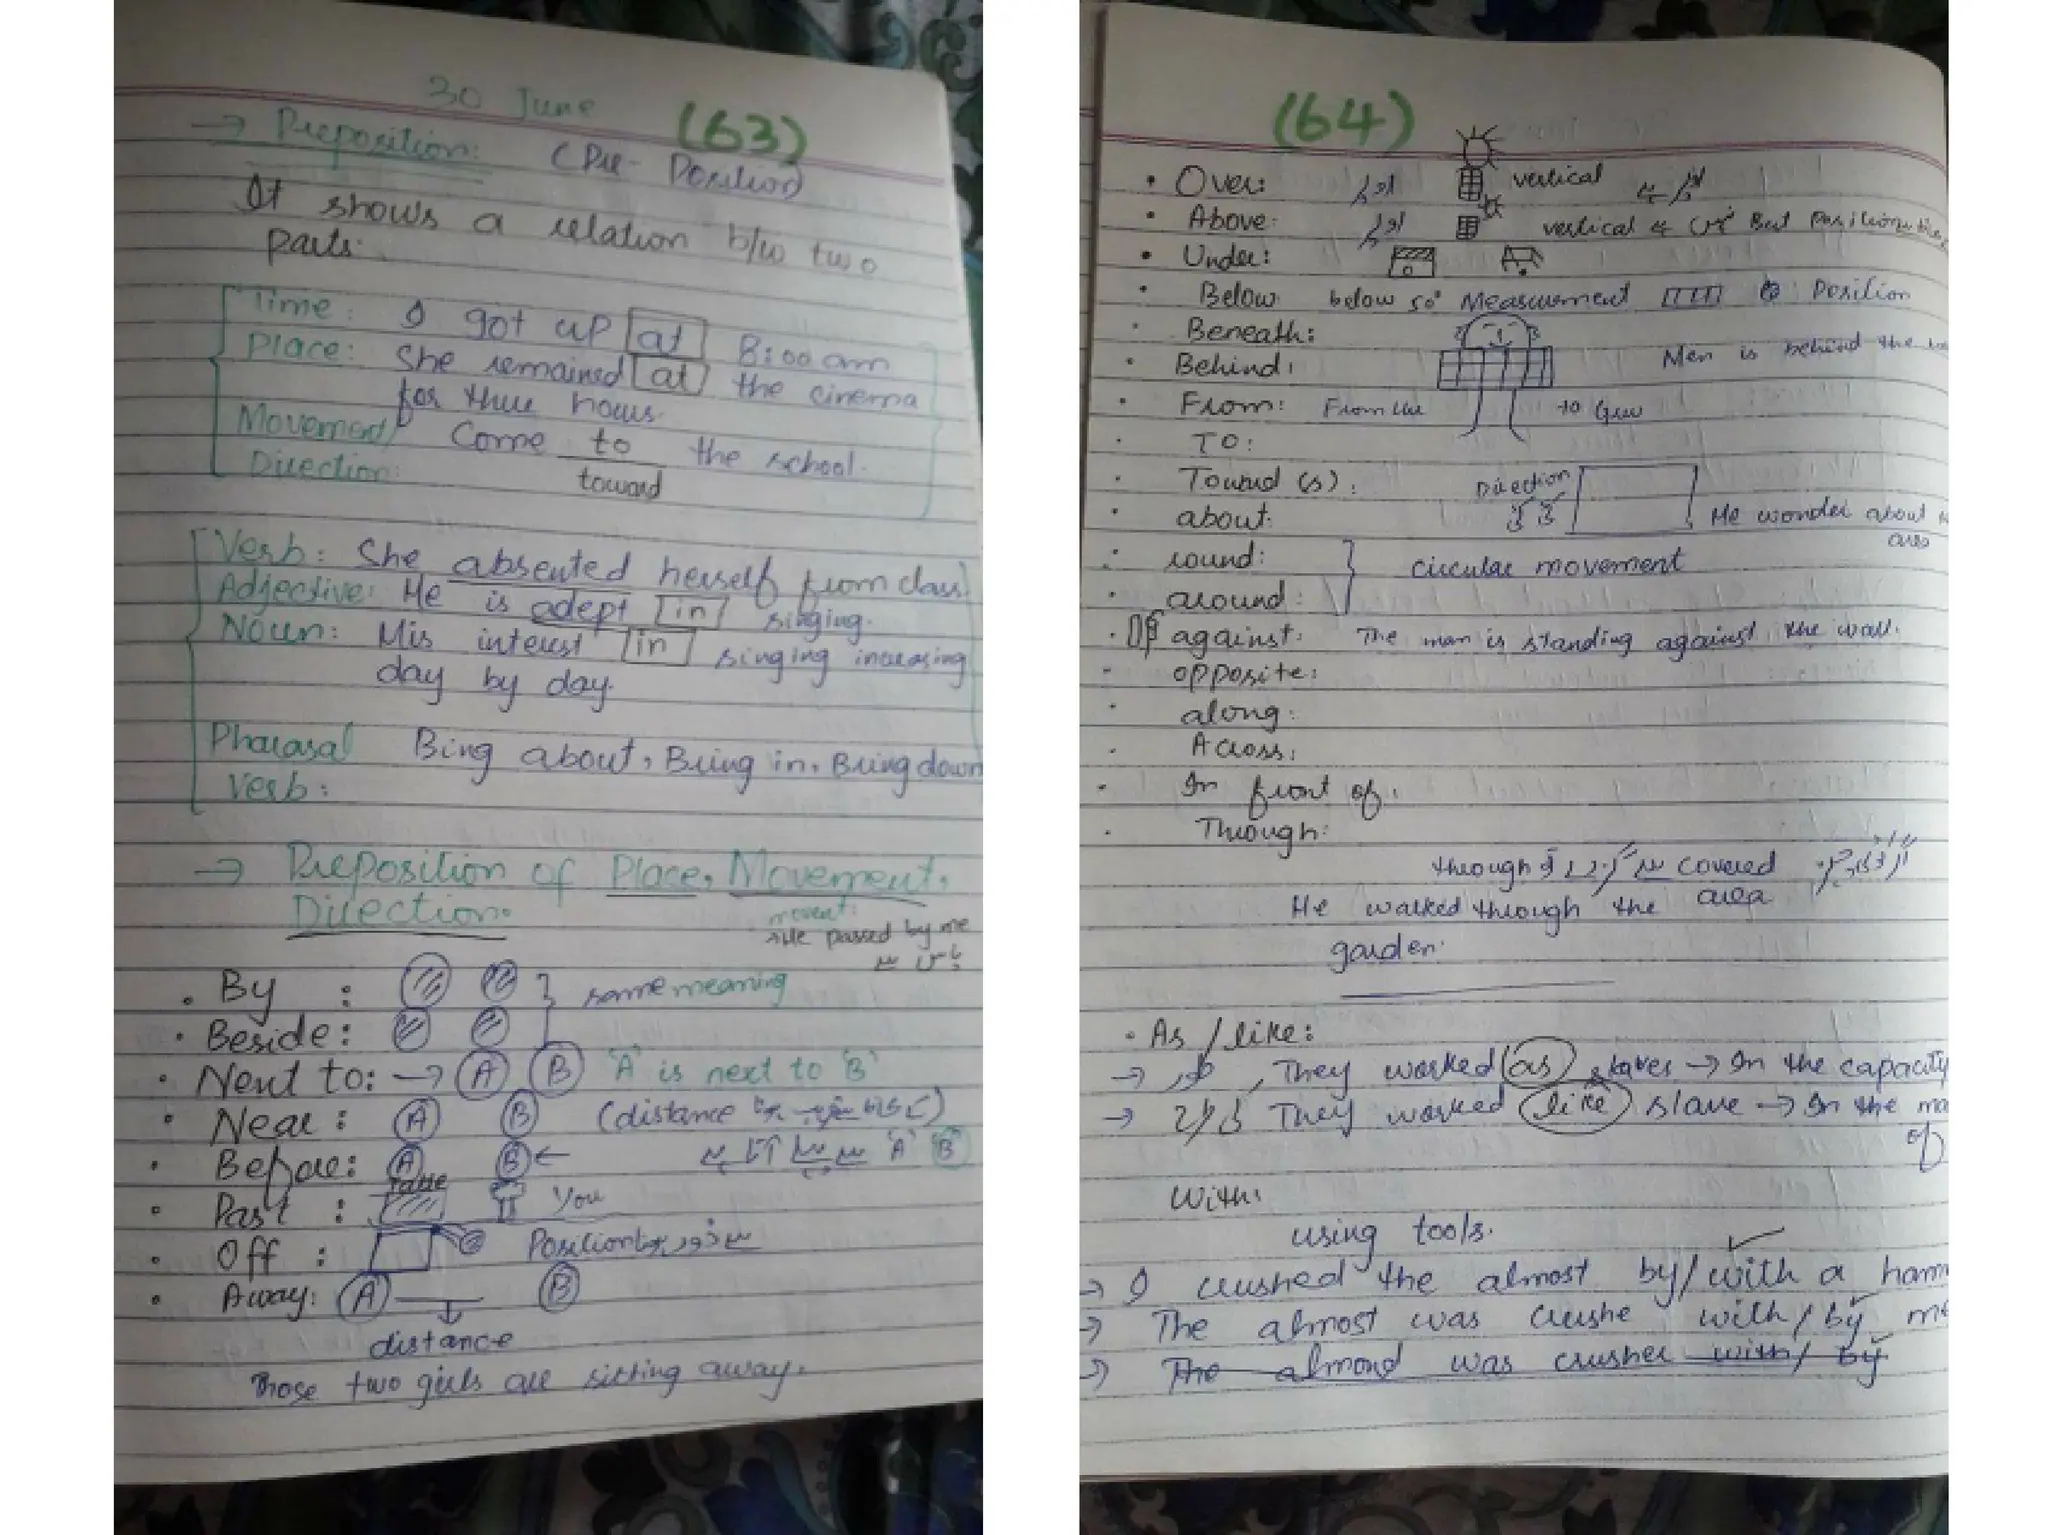 30 June (63)
→ Preposition: (Pre-Position)
It shows a relation b/w two
parts.
Time: I got up at 8:00 am
Place: She remained at the cinema
for three hours.
Movement/ Come to the school.
Direction: toward
Verb: She absented herself from class
Adjective: He is adept in singing.
Noun: His interest in singing increasing
day by day.
Pharasal Bing about, Bring in, Bring down
Verb:
→ Preposition of Place, Movement,
Direction.
She passed by me
• By : same meaning
• Beside:
• Next to: → A B 'A' is next to 'B'
• Near: A B (distance
• Before: A B ← 'A' 'B'
• Past : Table You
• Off : Position
• Away: A B
distance
Those two girls are sitting away.
(64)
• Over: vertical
• Above: vertical But Position
• Under:
• Below below 50° Measurement Position
• Beneath:
• Behind: Men is behind the
• From: From to
• To:
• Toward (s): Direction
• about: He wonder about
area
• round: circular movement
• around:
• against: The man is standing against the wall.
• opposite:
• along:
• Across:
• In front of:
• Through:
through covered
area
He walked through the
garden.
• As/like:
→ They worked as slaves → In the capacity
→ They worked like slave → In the
of
With:
using tools.
→ I crushed the almost by/with a
→ The almost was crushe with/by me
→ The almond was crusher with/ by